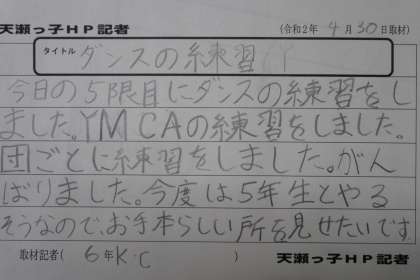 天瀬っ子HP記者 (令和2年 4月30日取材)
タイトル ダンスの練習
今日の5限目にダンスの練習をし
ました。YMCAの練習をしました。
団ごとに練習をしました。がん
ばりました。今度は5年生とやる
そうなので、お手本らしい所を見せたいです。
取材記者( 6年K・C )
天瀬っ子HP記者